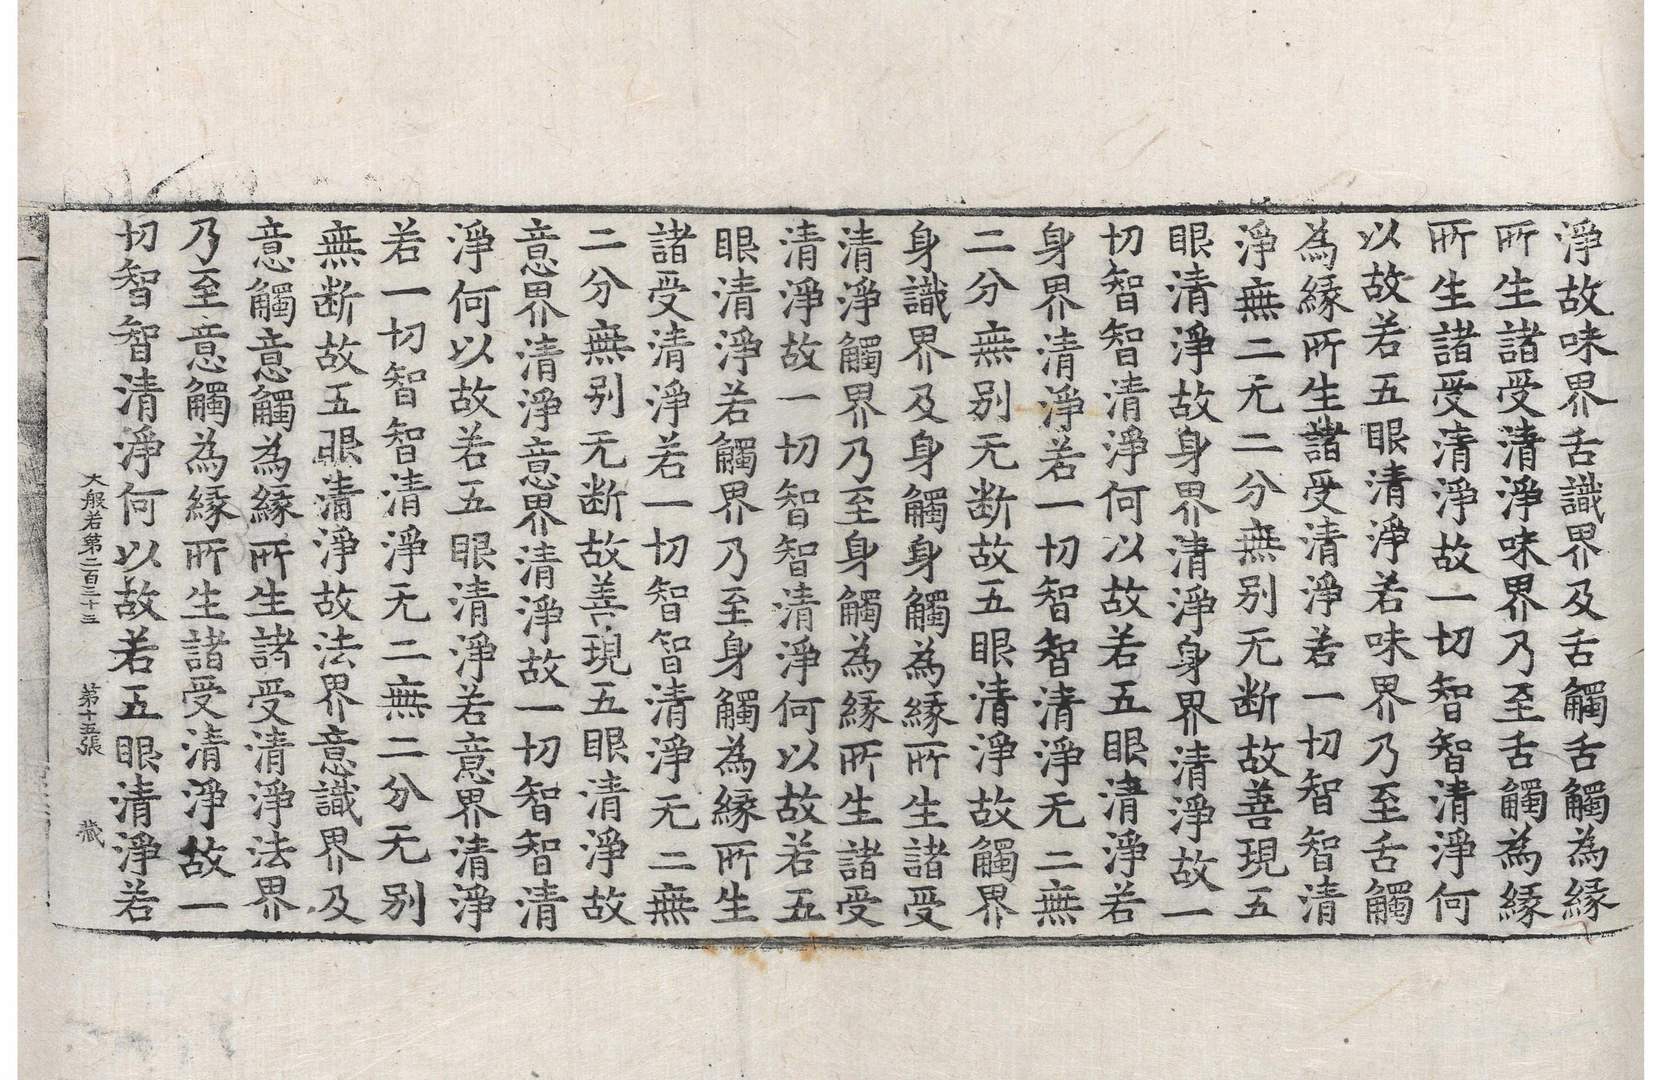 淨故味界舌識界及舌觸舌觸為緣
所生諸受清淨味界乃至舌觸為緣
所生諸受清淨故一切智智清淨何
以故若五眼清淨若味界乃至舌觸
為緣所生諸受清淨若一切智智清
淨無二无二分無别无断故善現五
眼清淨故身界清淨身界清淨故一
切智智清淨何以故若五眼清淨若
身界清淨若一切智智清淨无二無
二分無别无断故五眼清淨故觸界
身識界及身觸身觸為緣所生諸受
清淨觸界乃至身觸為緣所生諸受
清淨故一切智智清淨何以故若五
眼清淨若觸界乃至身觸為緣所生
諸受清淨若一切智智清淨无二無
二分無别无断故善現五眼清淨故
意界清淨意界清淨故一切智智清
淨何以故若五眼清淨若意界清淨
若一切智智清淨无二無二分无别
無断故五眼清淨故法界意識界及
意觸意觸為緣所生諸受清淨法界
乃至意觸為緣所生諸受清淨故一
切智智清淨何以故若五眼清淨若
大般若第二百三十三 第十五張 藏